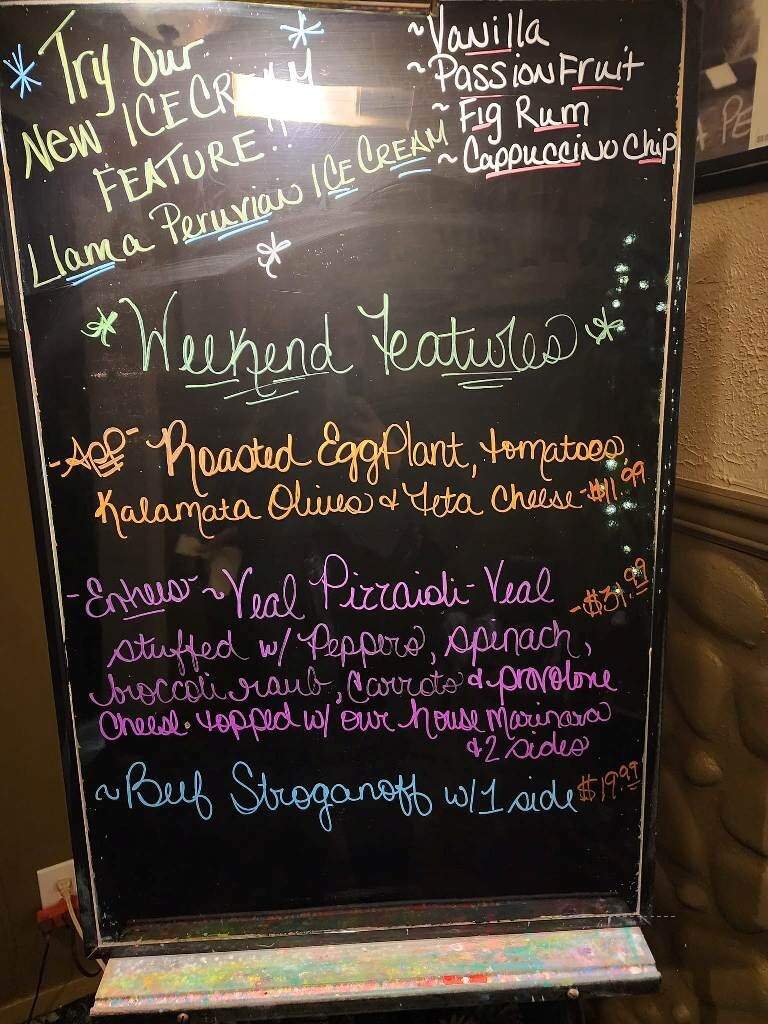 * Try Our *
NEW ICE CREAM
FEATURE!!
Llama Peruvian ICE CREAM
~Vanilla
~Passion Fruit
~Fig Rum
~Cappuccino Chip
Weekend Features
-App- Roasted EggPlant, tomatoes,
Kalamata Olives & Feta Cheese-$11.99
-Entrees~Veal Pizzaioli-Veal -$31.99
stuffed w/ Peppers, spinach,
broccoli raub, Carrots & provolone
Cheese. topped w/ our house Marinara
& 2 sides
~Beef Stroganoff w/1 side $19.99